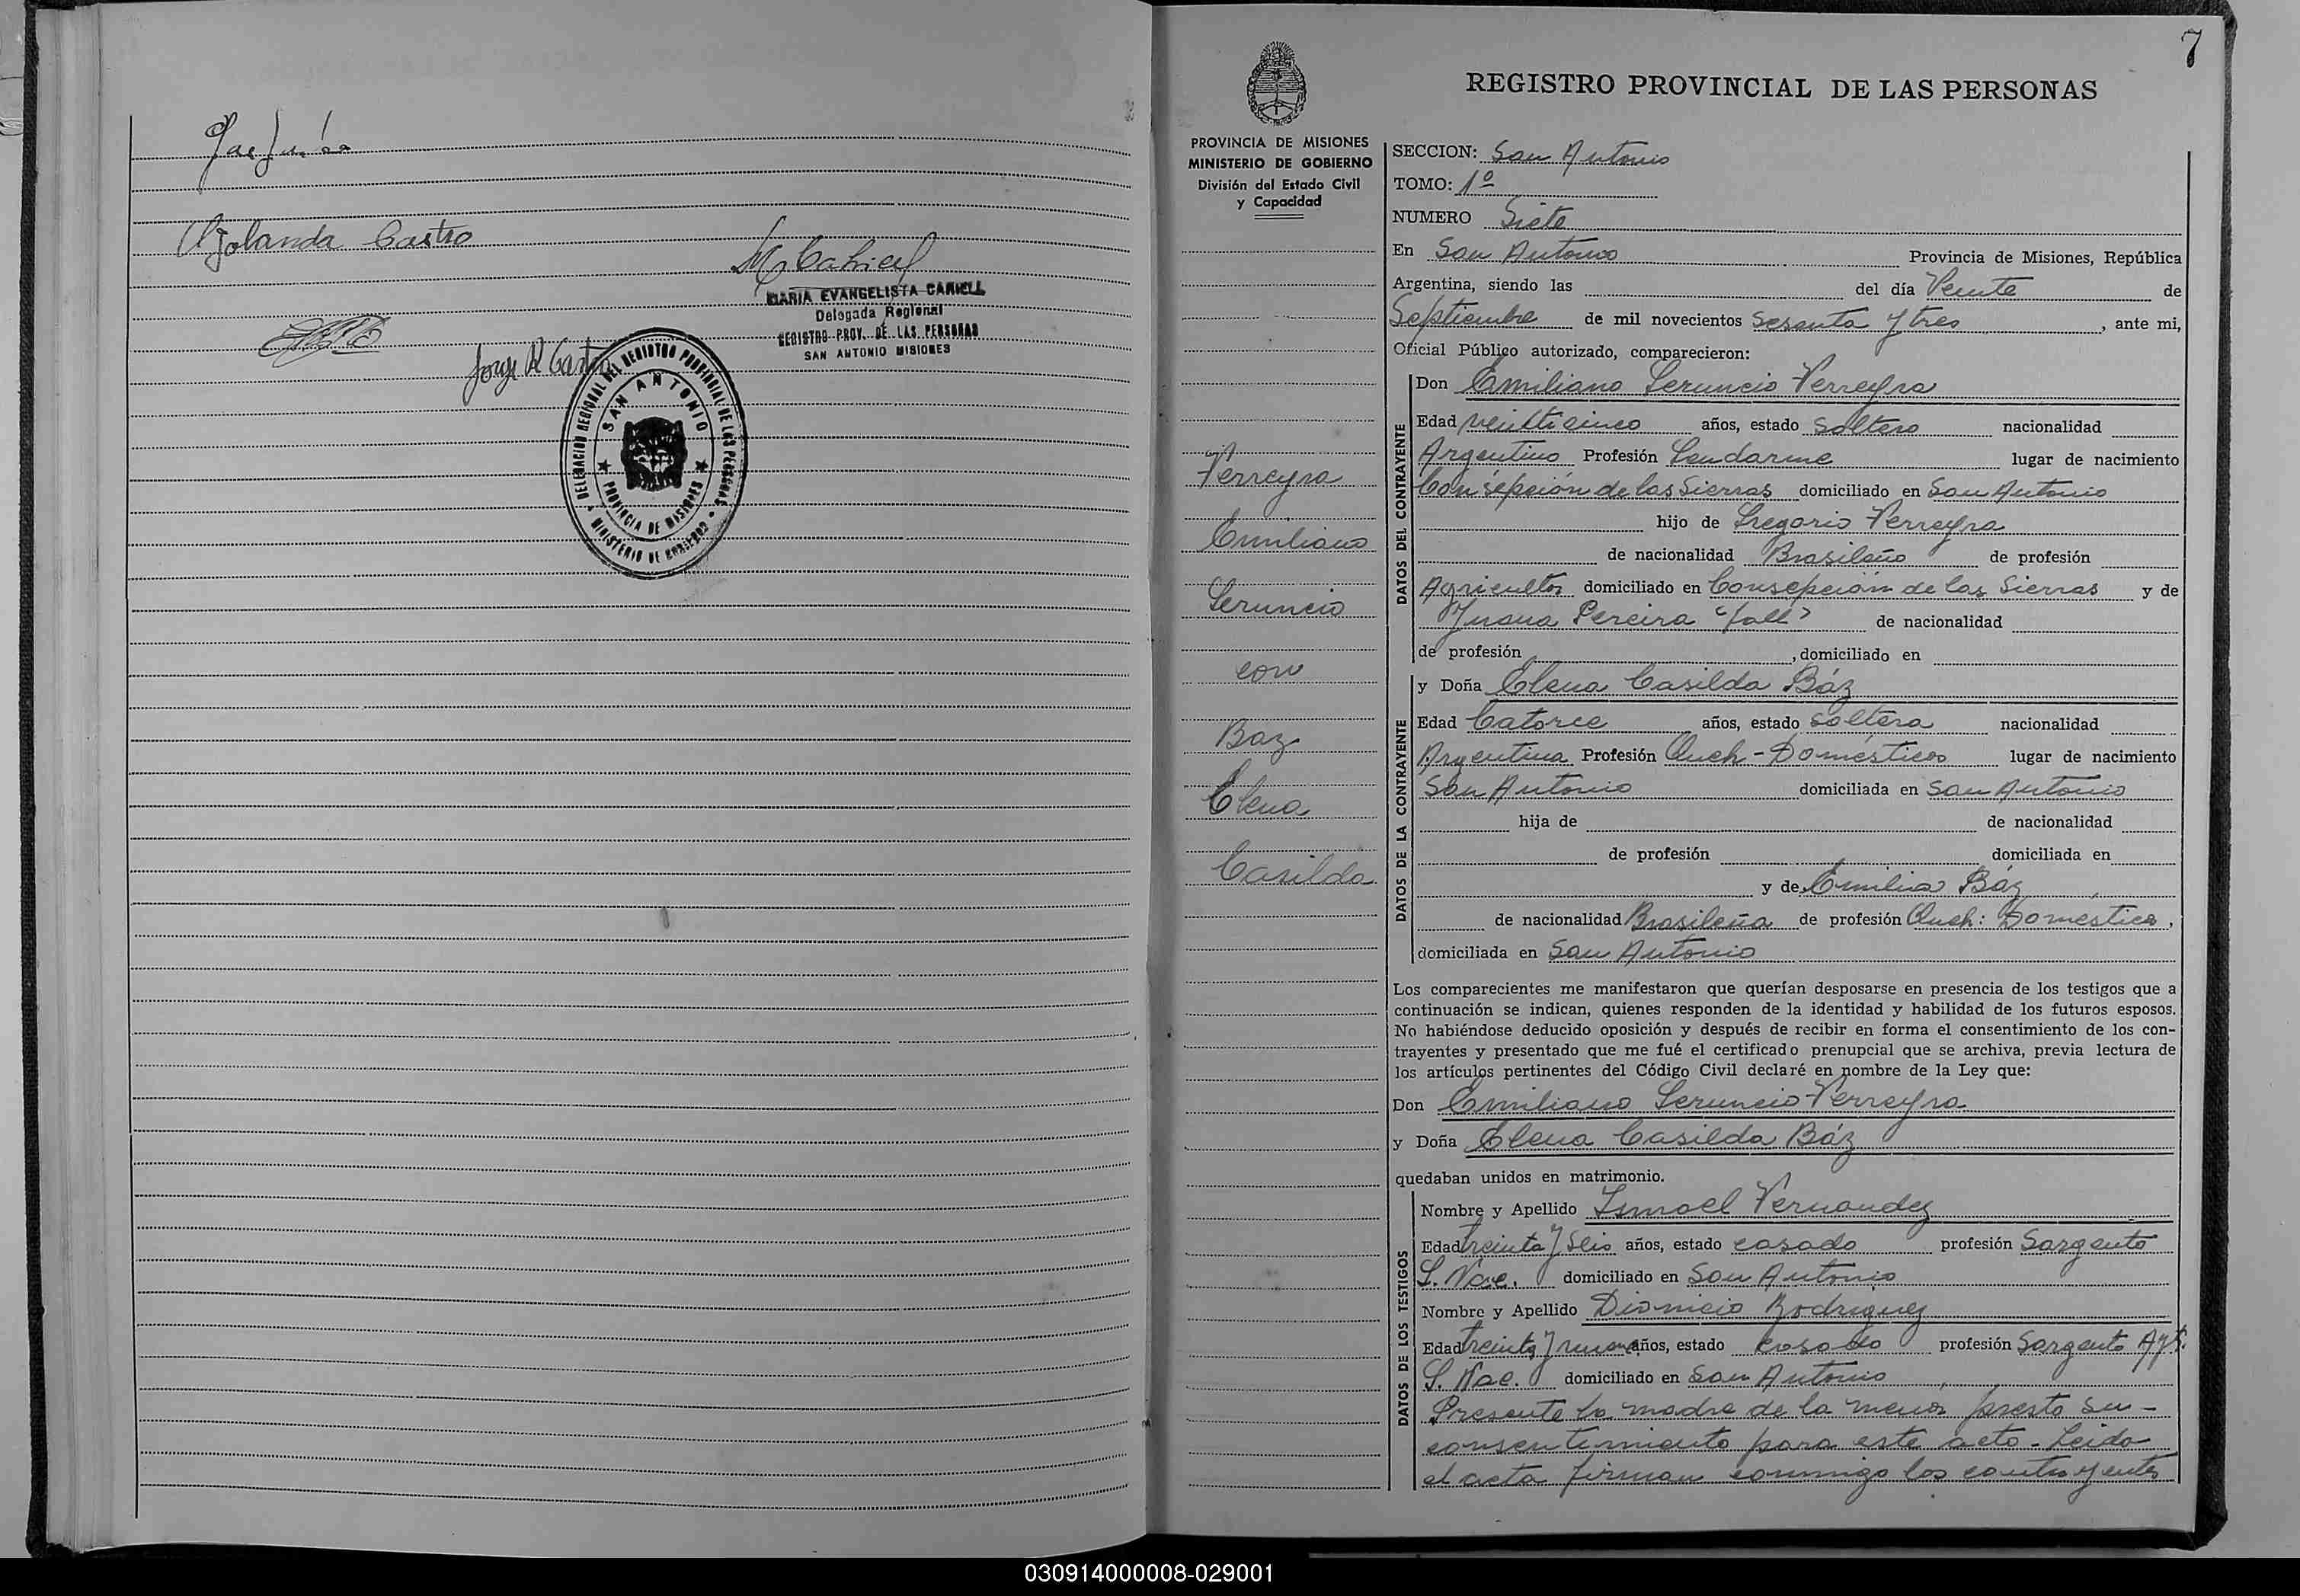 Yolanda Castro
MARIA EVANGELISTA CARIELL
Delegada Regional
REGISTRO PROV. DE LAS PERSONAS
SAN ANTONIO MISIONES
Jorge R Castro
DELEGACION REGIONAL DEL REGISTRO PROVINCIAL DE LAS PERSONAS
SAN ANTONIO
PROVINCIA DE MISIONES
MINISTERIO DE GOBIERNO
7
REGISTRO PROVINCIAL DE LAS PERSONAS
PROVINCIA DE MISIONES
MINISTERIO DE GOBIERNO
División del Estado Civil
y Capacidad
Ferreyra
Emiliano
Leruncio
con
Baz
Elena
Casilda
SECCION: San Antonio
TOMO: 1º
NUMERO Siete
En San Antonio Provincia de Misiones, República
Argentina, siendo las del día Veinte de
Septiembre de mil novecientos Sesenta y tres, ante mi,
Oficial Público autorizado, comparecieron:
DATOS DEL CONTRAYENTE
Don Emiliano Leruncio Ferreyra
Edad veinticinco años, estado Soltero nacionalidad
Argentino Profesión Gendarme lugar de nacimiento
Consepción de las Sierras domiciliado en San Antonio
hijo de Gregorio Ferreyra
de nacionalidad Brasileño de profesión
Agricultor domiciliado en Consepción de las Sierras y de
Juana Pereira "fall" de nacionalidad
de profesión , domiciliado en
DATOS DE LA CONTRAYENTE
y Doña Elena Casilda Báz
Edad Catorce años, estado soltera nacionalidad
Argentina Profesión Queh-Domésticos lugar de nacimiento
San Antonio domiciliada en San Antonio
hija de de nacionalidad
de profesión domiciliada en
y de Emilia Báz
de nacionalidad Brasileña de profesión Queh: Doméstico,
domiciliada en San Antonio
Los comparecientes me manifestaron que querían desposarse en presencia de los testigos que a
continuación se indican, quienes responden de la identidad y habilidad de los futuros esposos.
No habiéndose deducido oposición y después de recibir en forma el consentimiento de los con-
trayentes y presentado que me fué el certificado prenupcial que se archiva, previa lectura de
los artículos pertinentes del Código Civil declaré en nombre de la Ley que:
Don Emiliano Leruncio Ferreyra
y Doña Elena Casilda Báz
quedaban unidos en matrimonio.
DATOS DE LOS TESTIGOS
Nombre y Apellido Ismael Fernandez
Edad treinta y Seis años, estado casado profesión Sargento
G. Nac. domiciliado en San Antonio
Nombre y Apellido Dionicio Rodriguez
Edad treinta y nueve años, estado casado profesión Sargento Ayt.
G. Nac. domiciliado en San Antonio
Presente la madre de la menor presto su-
consentimiento para este acto. Leida
el acta firman conmigo los contrayentes
030914000008-029001